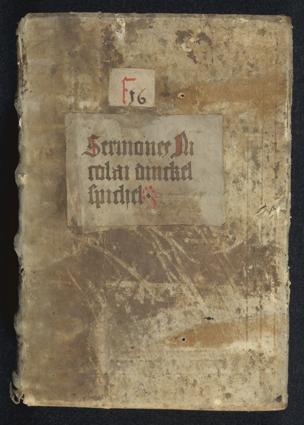 F 56
Sermones Ni
colai dinckel
spuhel